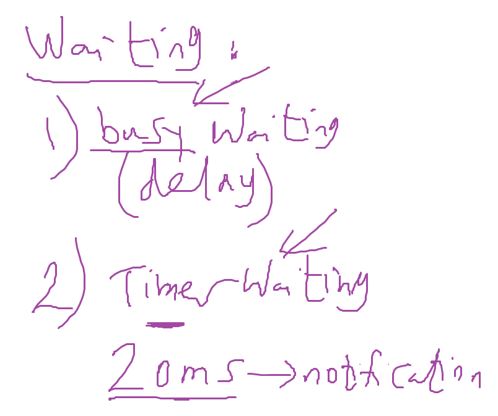 Waiting :
1) busy Waiting
(delay)
2) Timer Waiting
20ms → notification